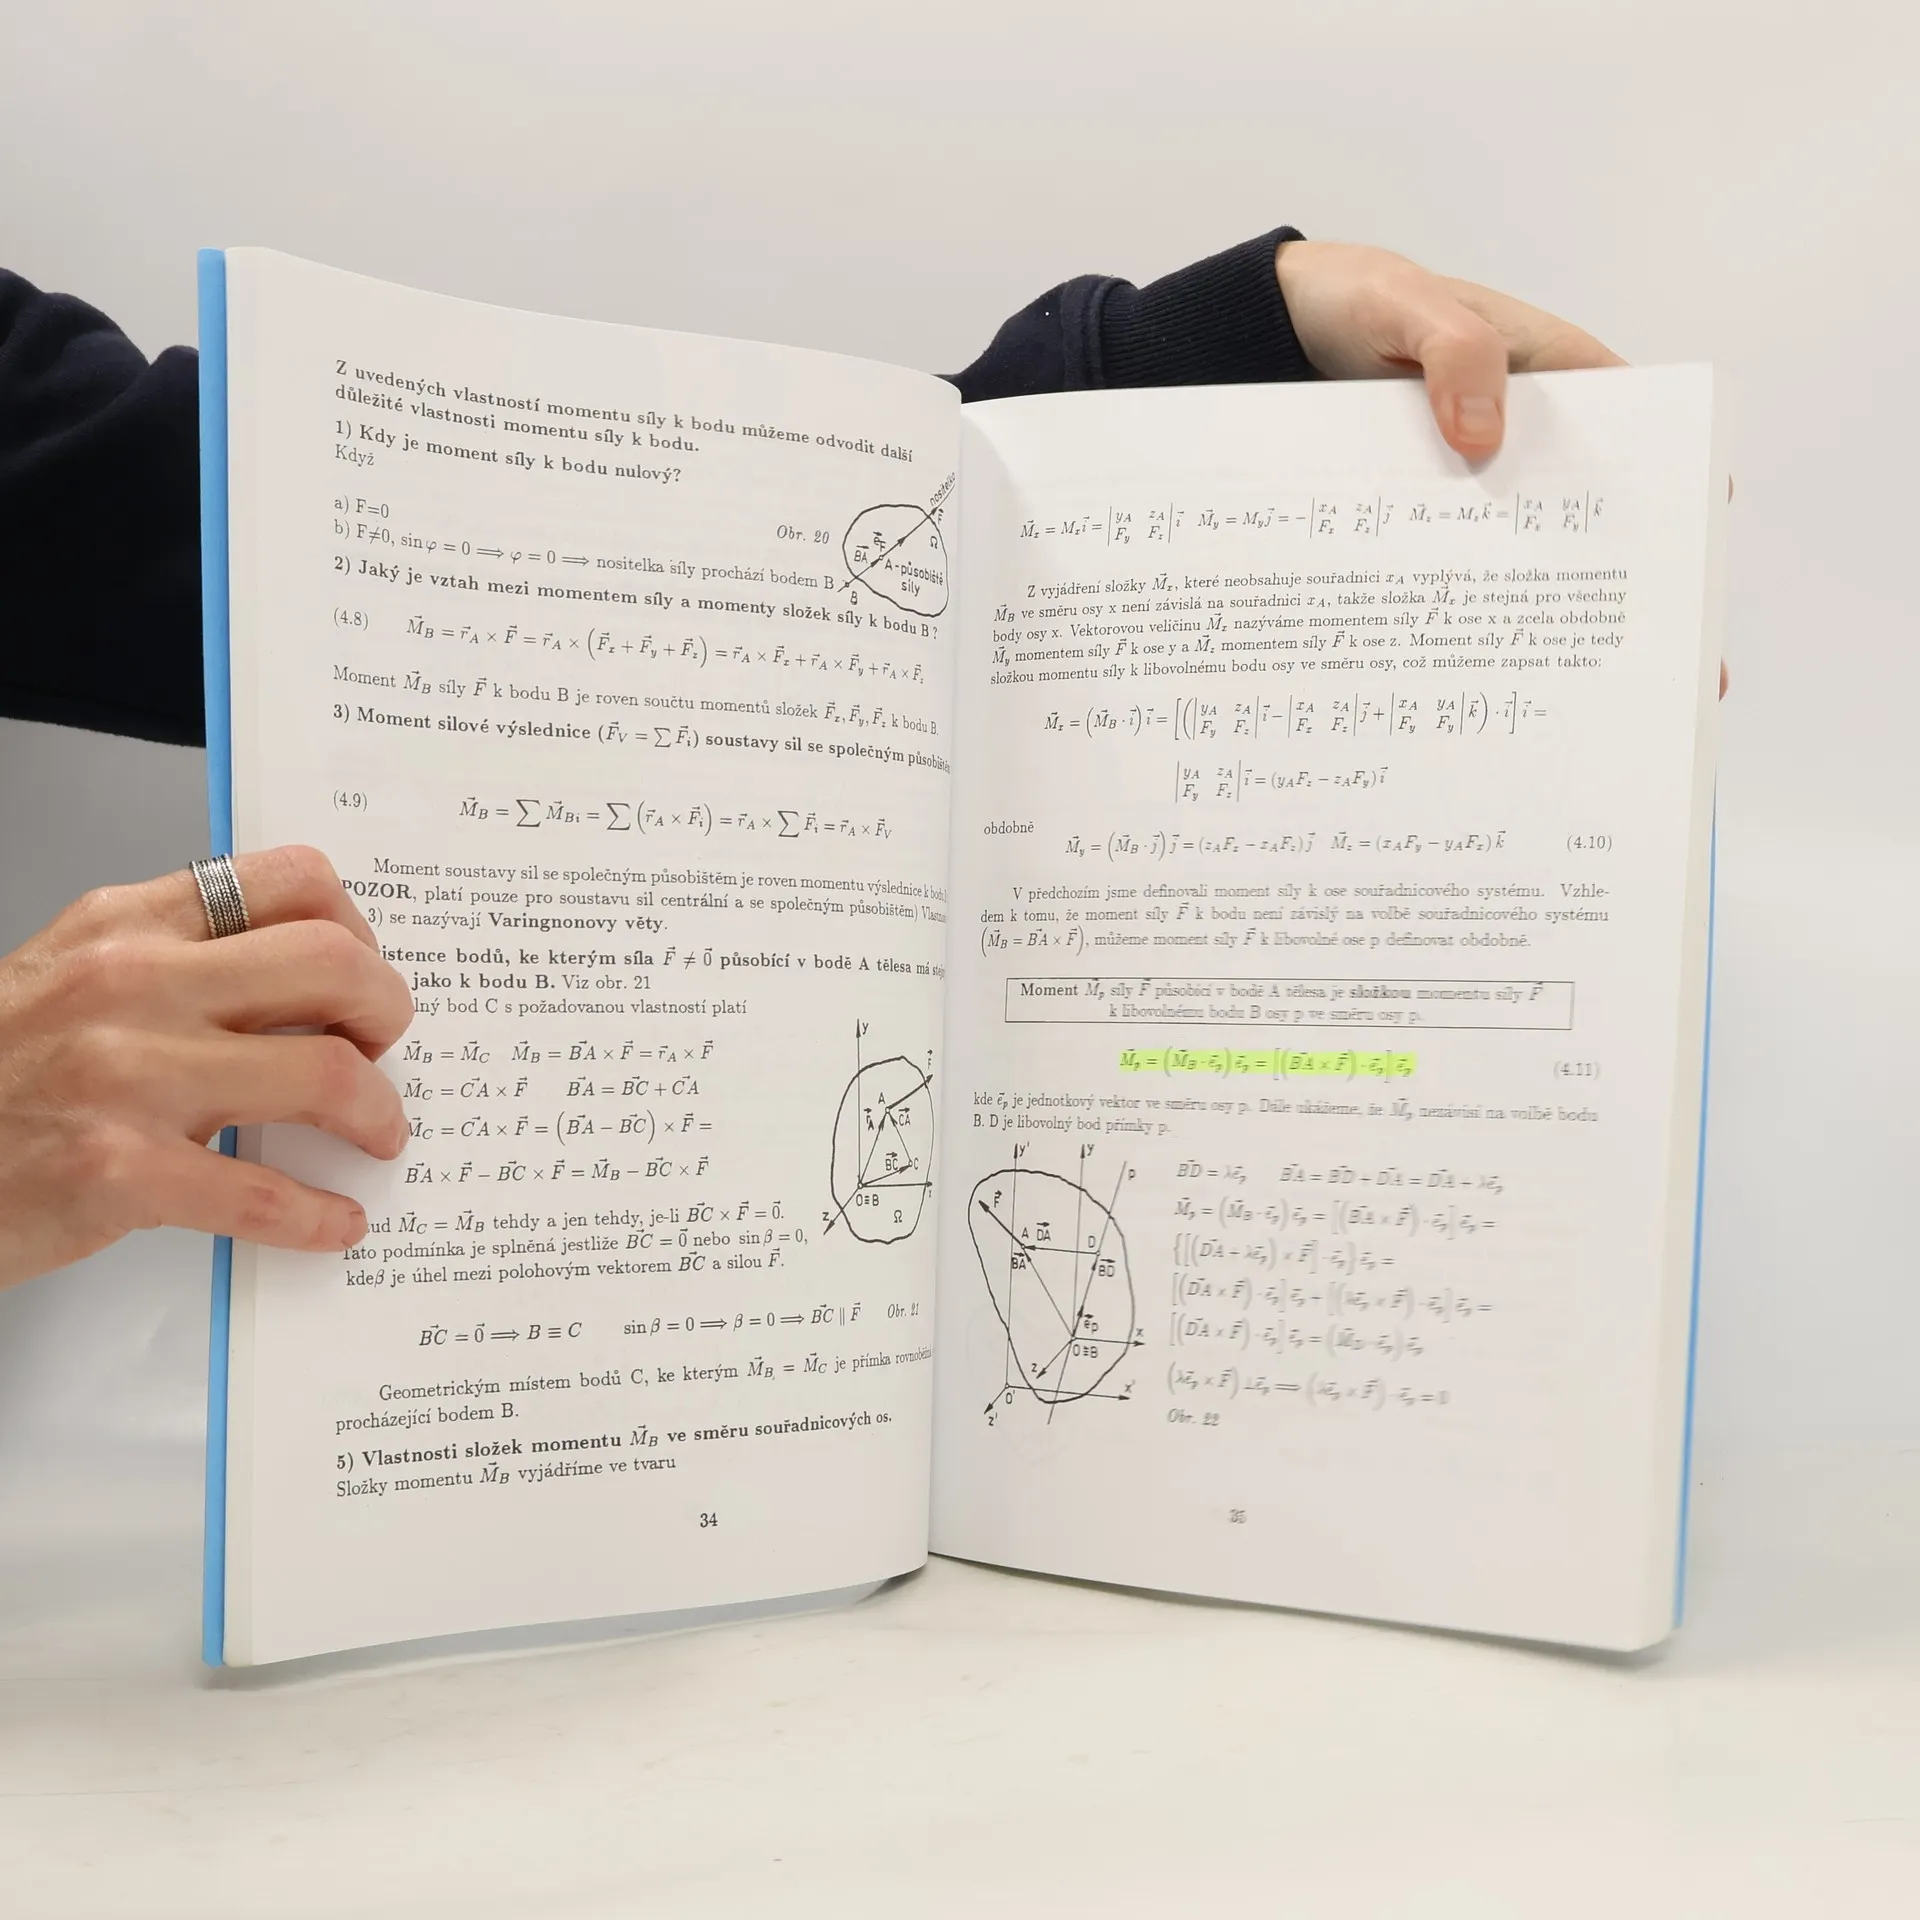 Z uvedených vlastností momentu síly k bodu můžeme odvodit další
důležité vlastnosti momentu síly k bodu.
1) Kdy je moment síly k bodu nulový?
Když
a) F=0
b) F≠0, sin φ = 0 ⟹ φ = 0 ⟹ nositelka síly prochází bodem B
Obr. 20
nositelka
F⃗
Ω
e⃗F
BA⃗
A - působiště
síly
B
2) Jaký je vztah mezi momentem síly a momenty složek síly k bodu B?
(4.8) M⃗B = r⃗A × F⃗ = r⃗A × (F⃗x + F⃗y + F⃗z) = r⃗A × F⃗x + r⃗A × F⃗y + r⃗A × F⃗z
Moment M⃗B síly F⃗ k bodu B je roven součtu momentů složek F⃗x, F⃗y, F⃗z k bodu B.
3) Moment silové výslednice (F⃗V = ∑ F⃗i) soustavy sil se společným
(4.9) M⃗B = ∑ M⃗Bi = ∑ (r⃗A × F⃗i) = r⃗A × ∑ F⃗i = r⃗A × F⃗V
Moment soustavy sil se společným působištěm je roven momentu výslednice k
POZOR, platí pouze pro soustavu sil centrální a se společným působištěm)
3) se nazývají Varingnonovy věty.
istence bodů, ke kterým síla F⃗ ≠ 0⃗ působící v bodě A tělesa má
jako k bodu B. Viz obr. 21
lný bod C s požadovanou vlastností platí
M⃗B = M⃗C M⃗B = BA⃗ × F⃗ = r⃗A × F⃗
M⃗C = CA⃗ × F⃗ BA⃗ = BC⃗ + CA⃗
M⃗C = CA⃗ × F⃗ = (BA⃗ − BC⃗) × F⃗ =
BA⃗ × F⃗ − BC⃗ × F⃗ = M⃗B − BC⃗ × F⃗
ud M⃗C = M⃗B tehdy a jen tehdy, je-li BC⃗ × F⃗ = 0⃗.
Tato podmínka je splněná jestliže BC⃗ = 0⃗ nebo sin β = 0,
kdeβ je úhel mezi polohovým vektorem BC⃗ a silou F⃗.
y
F⃗
A
r⃗A
CA⃗
BC⃗
C
O≡B
z
Ω
BC⃗ = 0⃗ ⟹ B ≡ C sin β = 0 ⟹ β = 0 ⟹ BC⃗ ∥ F⃗ Obr. 21
Geometrickým místem bodů C, ke kterým M⃗B = M⃗C je přímka
procházející bodem B.
5) Vlastnosti složek momentu M⃗B ve směru souřadnicových os.
Složky momentu M⃗B vyjádříme ve tvaru
34
M⃗x = Mx i⃗ = |yA zA; Fy Fz| i⃗ M⃗y = My j⃗ = −|xA zA; Fx Fz| j⃗ M⃗z = Mz k⃗ = |xA yA; Fx Fy| k⃗
Z vyjádření složky M⃗x, které neobsahuje souřadnici xA vyplývá, že složka momentu
M⃗B ve směru osy x není závislá na souřadnici xA, takže složka M⃗x je stejná pro všechny
body osy x. Vektorovou veličinu M⃗x nazýváme momentem síly F⃗ k ose x a zcela obdobně
M⃗y momentem síly F⃗ k ose y a M⃗z momentem síly F⃗ k ose z. Moment síly F⃗ k ose je tedy
složkou momentu síly k libovolnému bodu osy ve směru osy, což můžeme zapsat takto:
M⃗x = (M⃗B · i⃗) i⃗ = [(|yA zA; Fy Fz| i⃗ − |xA zA; Fx Fz| j⃗ + |xA yA; Fx Fy| k⃗) · i⃗] i⃗ =
|yA zA; Fy Fz| i⃗ = (yAFz − zAFy) i⃗
obdobně
M⃗y = (M⃗B · j⃗) j⃗ = (zAFx − xAFz) j⃗ M⃗z = (xAFy − yAFx) k⃗ (4.10)
V předchozím jsme definovali moment síly k ose souřadnicového systému. Vzhle-
dem k tomu, že moment síly F⃗ k bodu není závislý na volbě souřadnicového systému
(M⃗B = BA⃗ × F⃗), můžeme moment síly F⃗ k libovolné ose p definovat obdobně.
Moment M⃗p síly F⃗ působící v bodě A tělesa je složkou momentu síly F⃗
k libovolnému bodu B osy p ve směru osy p.
M⃗p = (M⃗B · e⃗p) e⃗p = [(BA⃗ × F⃗) · e⃗p] e⃗p (4.11)
kde e⃗p je jednotkový vektor ve směru osy p. Dále ukážeme, že M⃗p nezávisí na volbě bodu
B. D je libovolný bod přímky p.
y'
y
p
F⃗
A
DA⃗
D
BA⃗
BD⃗
e⃗p
x
O≡B
z
O'
x'
z'
BD⃗ = λe⃗p BA⃗ = BD⃗ + DA⃗ = DA⃗ + λe⃗p
M⃗p = (M⃗B · e⃗p) e⃗p = [(BA⃗ × F⃗) · e⃗p] e⃗p =
{[(DA⃗ + λe⃗p) × F⃗] · e⃗p} e⃗p =
[(DA⃗ × F⃗) · e⃗p] e⃗p + [(λe⃗p × F⃗) · e⃗p] e⃗p =
[(DA⃗ × F⃗) · e⃗p] e⃗p = (M⃗D · e⃗p) e⃗p
(λe⃗p × F⃗) ⊥ e⃗p ⟹ (λe⃗p × F⃗) · e⃗p = 0
Obr. 22
35